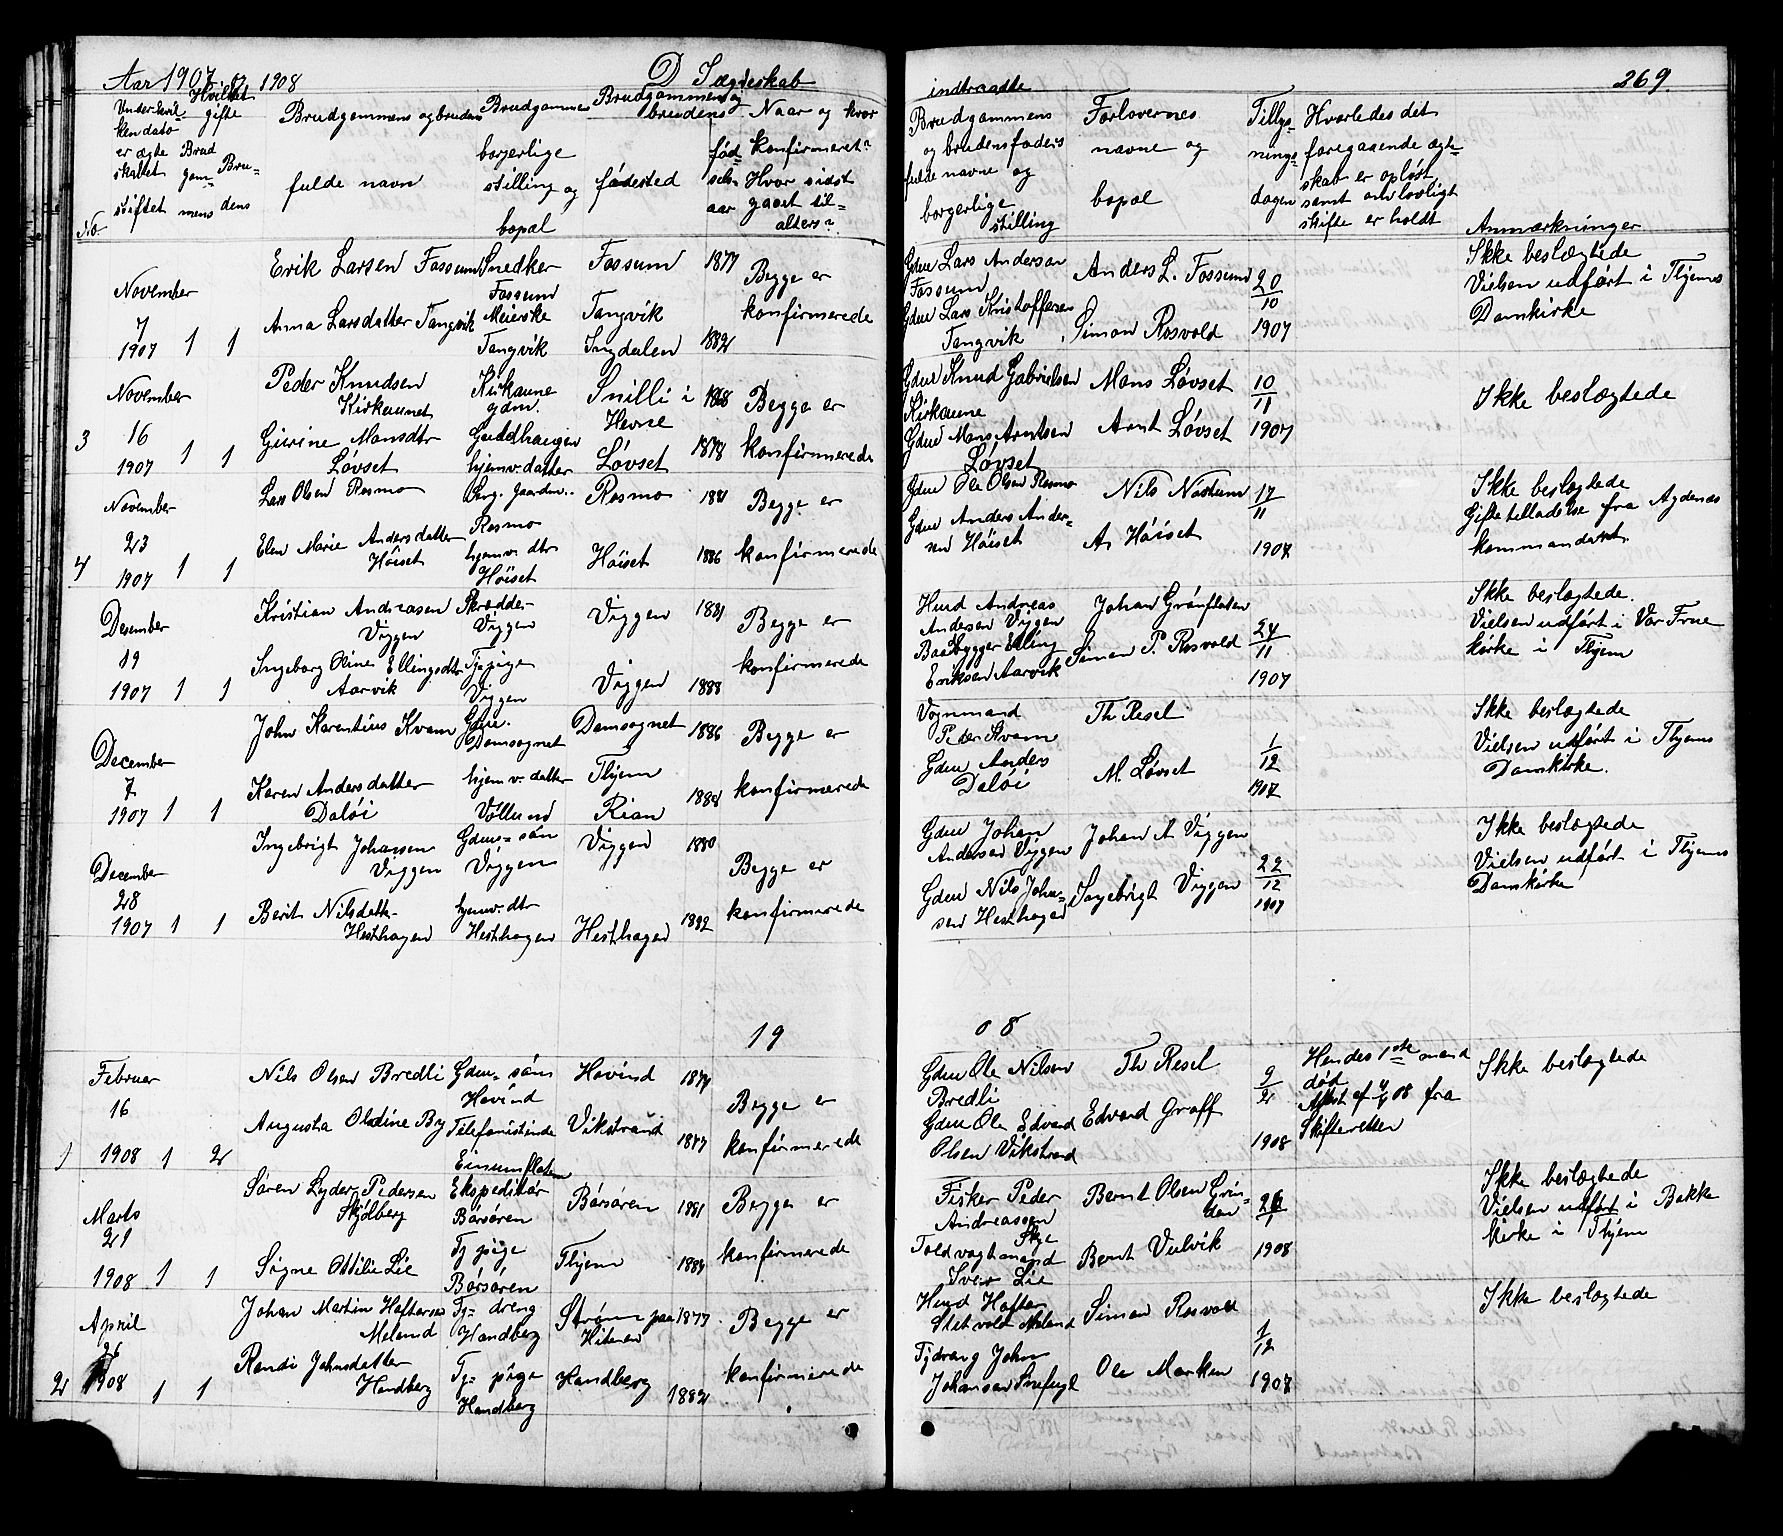 Aar 1907 og 1908 D Ægteskab indtraadte 269.
No
Under hvil-
ken dato
er ægte
skabet
stiftet
Hvilket gifte
Brud
gom-
mens
Bru-
dens
Brudgommens og brudens
fulde navn
Brudgommens
borgerlige
stilling og
bopæl
Brudgommens og
brudens
fødested
fød-
sels-
aar
Naar og hvor
konfirmeret?
Hvor sidst
gaaet til
alters?
Brudgommens
og brudens faders
fulde navne og
borgerlige
stilling
Forlovernes
navne og
bopæl
Tillys-
nings-
dagen
Hvorledes det
foregaaende ægte-
skab er opløst
samt om lovligt
skifte er holdt
Anmærkninger
November
7
1907 1 1
Erik Larsen Fossum
Anna Larsdatter Tangvik
Snedker
Fossum
Meierske
Tangvik
Fossum
Tangvik
Ingdalen
1877
1882
Begge er
konfirmerede
Gdm Lars Anderson
Fossum
Gdm Lars Kristoffersen
Tangvik
Anders L. Fossum
Simon Rosvold
20/10
1907
Ikke beslægtede
Vielsen udført i Thjems
Domkirke
3
November
16
1907 1 1
Peder Knudsen
Kirkaunet
Gurine Monsdtr
Løvset
Kirkaune
gdm.
Guddhaugen
hjemv. datter
Snilli i
Hevne
Løvset
1868
1878
Begge er
konfirmerede
Gdm Knud Gabrielsen
Kirkaune
Gdm Mons Arntsen
Løvset
Mons Løvset
Arnt Løvset
10/11
1907
Ikke beslægtede
4
November
23
1907 1 1
Lars Olsen Rosmo
Elen Marie Andersdatter
Høiset
Rosmo
hjemv. dtr
Høiset
Rosmo
Høiset
1881
1886
Begge er
konfirmerede
Gdm Ole Olsen Rosmo
Gdm Anders Ander-
sen Høiset
Nils Nostum
A. Høiset
17/11
1907
Ikke beslægtede
Giftetilladelse fra Agdenes
kommandant.
Desember
19
1907 1 1
Kristian Andreasen
Viggen
Ingeborg Oline Ellingsdtr
Aarvik
Skrædder
Viggen
Tj-pige
Viggen
Viggen
Viggen
1881
1888
Begge er
konfirmerede
Husd Andreas
Andersen Viggen
Baadbygger Elling
Eriksen Aarvik
Johan Grønfleten
Simon P. Rosvold
24/11
1907
Ikke beslægtede.
Vielsen udført i Vor Frue
kirke i Thjem
December
7
1907 1 1
John Karentius Kvam
Karen Andersdatter
Daløi
Gdm.
Domsognet
hjemv. datter
Vollund
Domsognet
Thjem
Rian
1886
1888
Begge er
konfirmerede
Vognmand
Peder Kvam
Gdm Anders
Daløi
Th Resel
M. Løvset
1/12
1907
Ikke beslægtede
Vielsen udført i Thjems
Domkirke.
December
28
1907 1 1
Ingebrigt Johansen
Viggen
Berit Nilsdatt-
Hesthagen
Gdms- søn
Viggen
hjemv. dtr
Hesthagen
Viggen
Hesthagen
1880
1882
Begge er
konfirmerede
Gdm Johan
Andersen Viggen
Gdm Nils John-
sen Hesthagen
Johan A Viggen
Ingebrigt Viggen
22/12
1907
Ikke beslægtede
Vielsen udført i Thjems
Domkirke
19 08
1
Februar
16
1908 1 2
Nils Olsen Bredli
Augusta Oldine By
Gdm- søn
Hovind
Telefonistinde
Einumfloten
Hovind
Vikstrand
1874
1877
Begge er
konfirmerede
Gdm Ole Nilsen
Bredli
Gdm Ole Edvard
Olsen Vikstrand
Th Resel
Edvard Graff
9/2
1908
Hendes 1ste mand
død
fra
Skifteretten
Ikke beslægtede
Marts
21
1908 1 1
Søren Lyder Pedersen
Skjølberg
Signe Ottilie Lie
Ekspeditør
Børsøren
Tj pige
Børsøren
Børsøren
Thjem
1881
1884
Begge er
konfirmerede
Fisker Peder
Andreassen
Toldvagtmand
Sver Lie
Bernt Olsen Grin-
den
Bernt Vulvik
1908
Ikke beslægtede
Vielsen udført i Bakke
kirke i Thjem
2
April
26
1908 1 1
Johan Martin Haftorsen
Meland
Randi Johnsdatter
Handberg
Tj- dreng
Handberg
Tj- pige
Handberg
Strøm paa
Hiteren
Handberg
1877
1882
Begge er
konfirmerede
Husd Haftor
Tjdreng John
Johansen Snefugl
Simon Rosvold
Ole Marken
1/12
1907
Ikke beslægtede